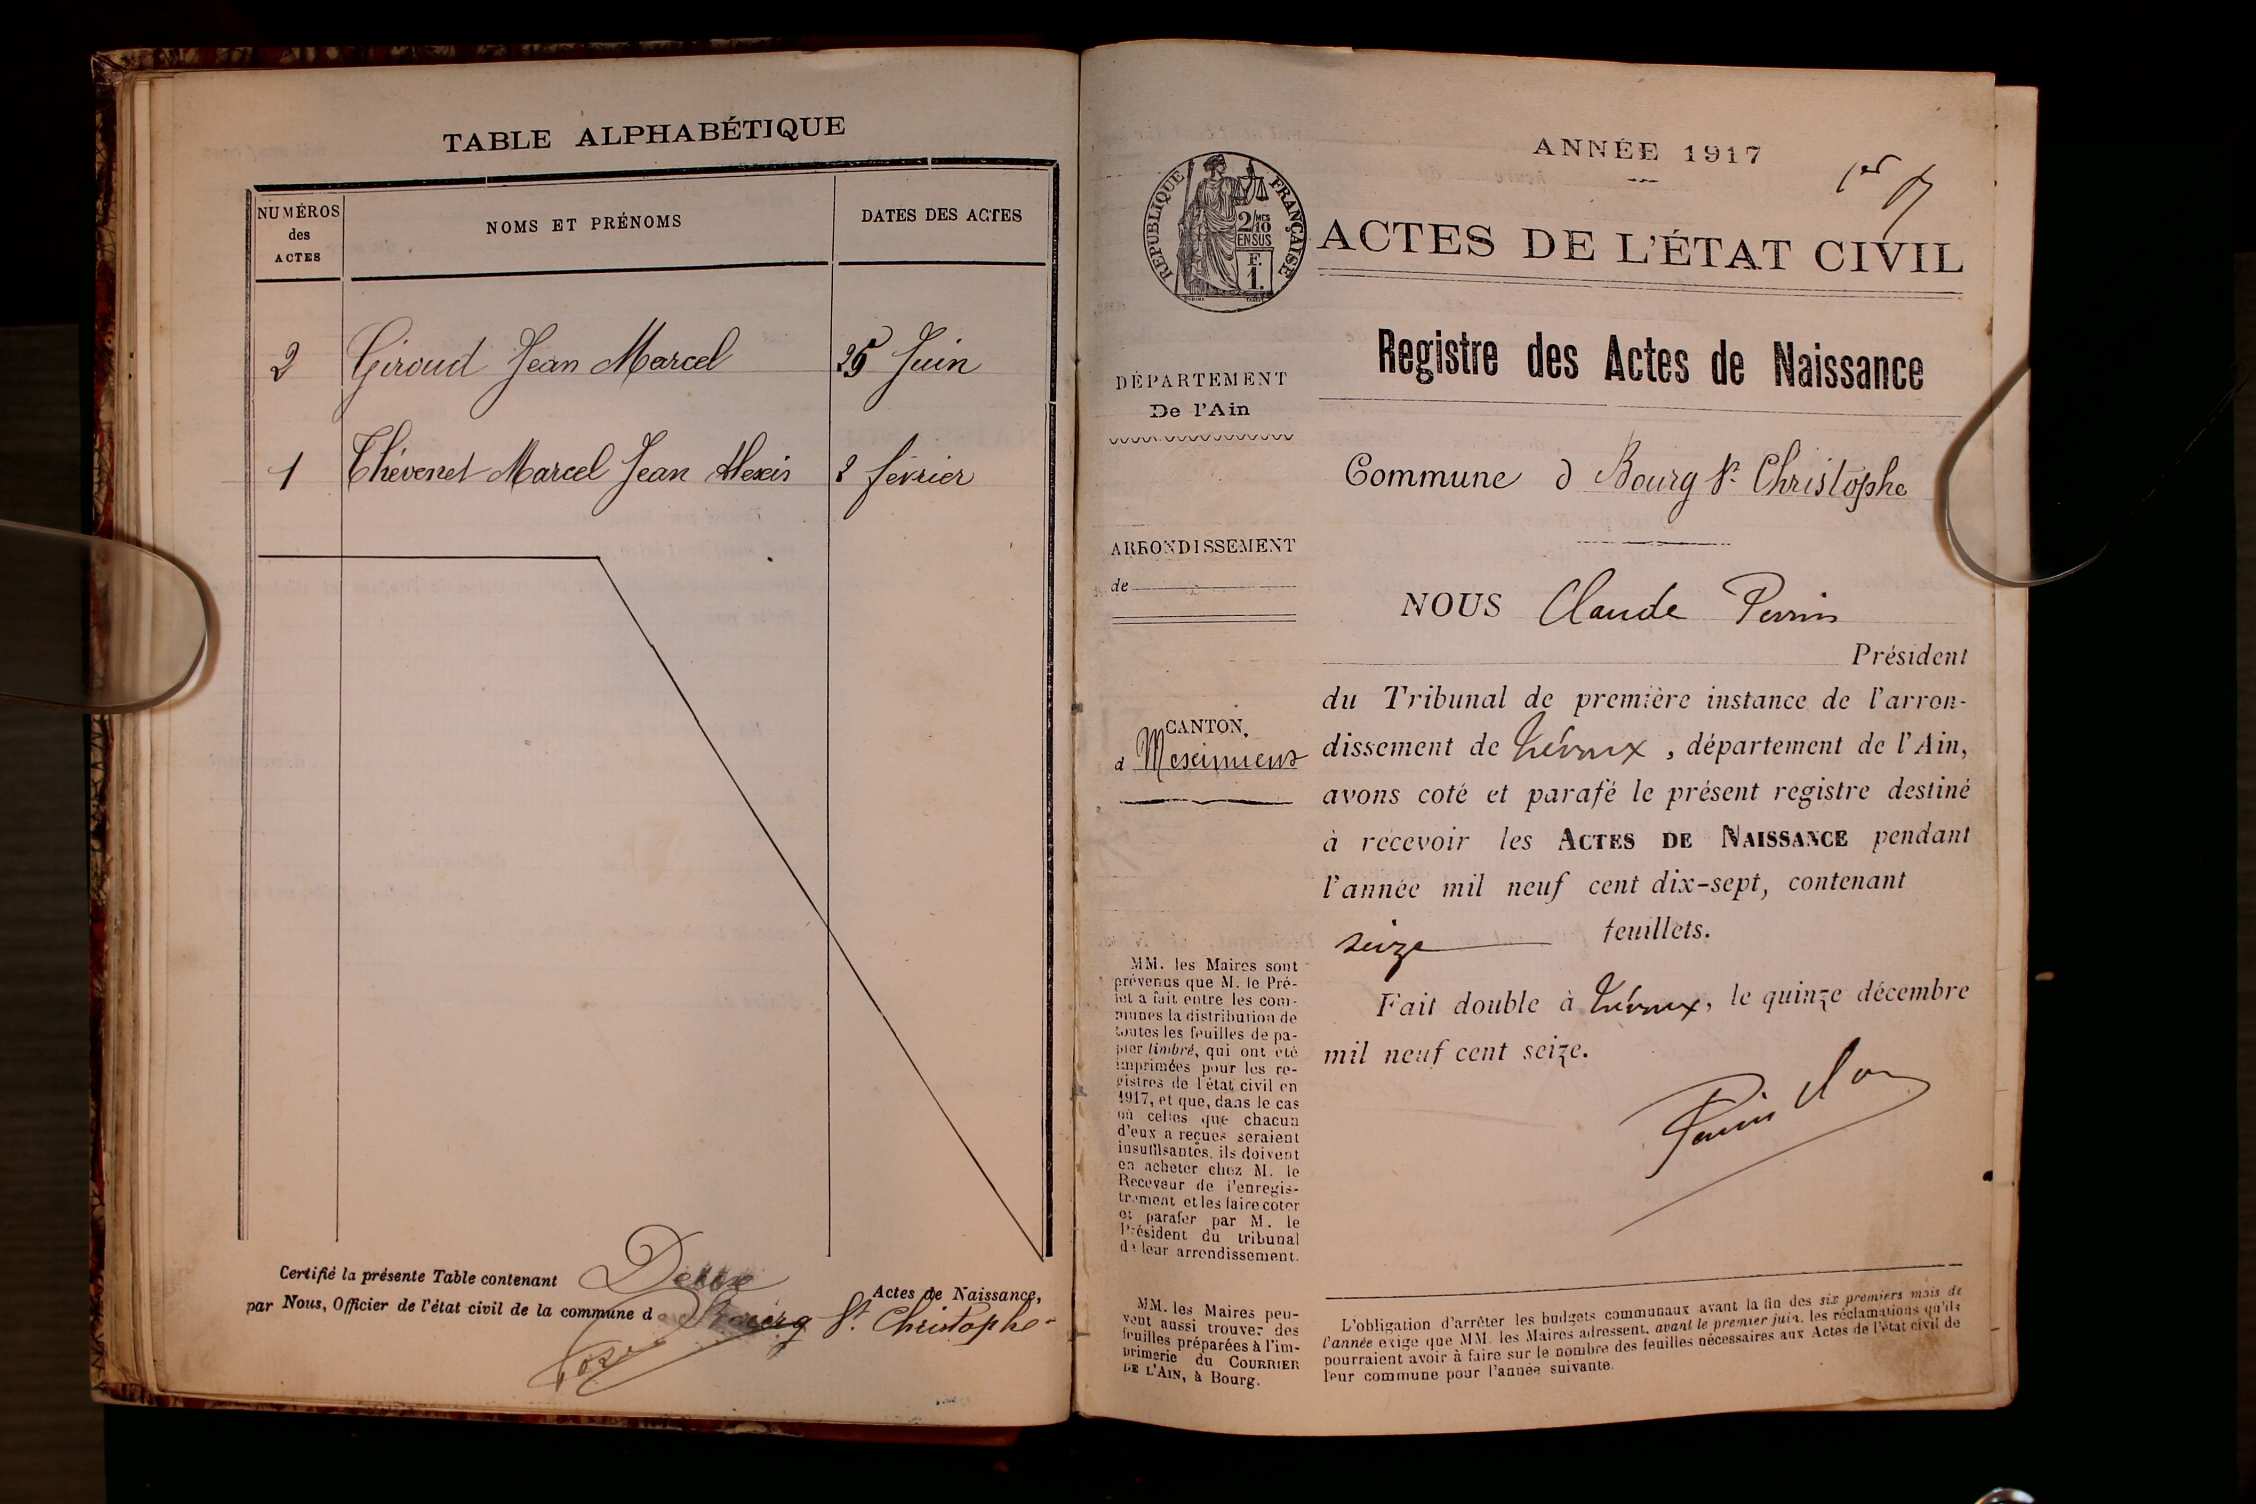 TABLE ALPHABÉTIQUE
NUMÉROS
des
ACTES
NOMS ET PRÉNOMS
DATES DES ACTES
2 Giroud Jean Marcel 25 Juin
1 Thévenet Marcel Jean Alexis 2 février
Certifié la présente Table contenant Deux Actes de Naissance,
par Nous, Officier de l'état civil de la commune d Bourg St. Christophe
ANNÉE 1917
1er
RÉPUBLIQUE FRANÇAISE
2/10 MES
EN SUS
F.
1.
ACTES DE L'ÉTAT CIVIL
Registre des Actes de Naissance
DÉPARTEMENT
De l'Ain
Commune d Bourg St. Christophe
ARRONDISSEMENT
de
NOUS Claude Perrin
Président
du Tribunal de première instance de l'arron-
dissement de Trévoux, département de l'Ain,
avons coté et parafé le présent registre destiné
à recevoir les ACTES DE NAISSANCE pendant
l'année mil neuf cent dix-sept, contenant
seize feuillets.
Fait double à Trévoux, le quinze décembre
mil neuf cent seize.
Perrin
CANTON
d Meximieux
MM. les Maires sont
prévenus que M. le Pré-
fet a fait entre les com-
munes la distribution de
toutes les feuilles de pa-
pier timbré, qui ont été
imprimées pour les re-
gistres de l'état civil en
1917, et que, dans le cas
où celles que chacun
d'eux a reçues seraient
insuffisantes, ils doivent
en acheter chez M. le
Receveur de l'enregis-
trement et les faire coter
et parafer par M. le
Président du tribunal
de leur arrondissement.
MM. les Maires peu-
vent aussi trouver des
feuilles préparées à l'im-
primerie du COURRIER
DE L'AIN, à Bourg.
L'obligation d'arrêter les budgets communaux avant la fin des six premiers mois de
l'année exige que MM. les Maires adressent, avant le premier juin, les réclamations qu'ils
pourraient avoir à faire sur le nombre des feuilles nécessaires aux Actes de l'état civil de
leur commune pour l'année suivante.